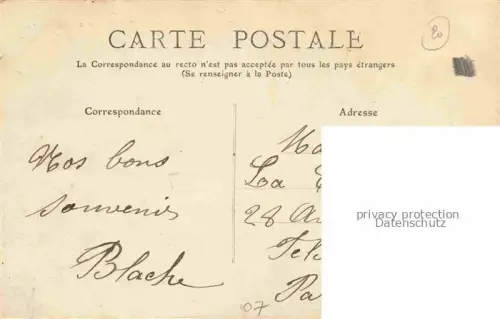 20
CARTE POSTALE
La Correspondance au recto n'est pas acceptée par tous les pays étrangers
(Se renseigner à la Poste)
Correspondance
Adresse
Nos bons
souvenirs
Blache
La
28
Pa
privacy protection
Datenschutz
07